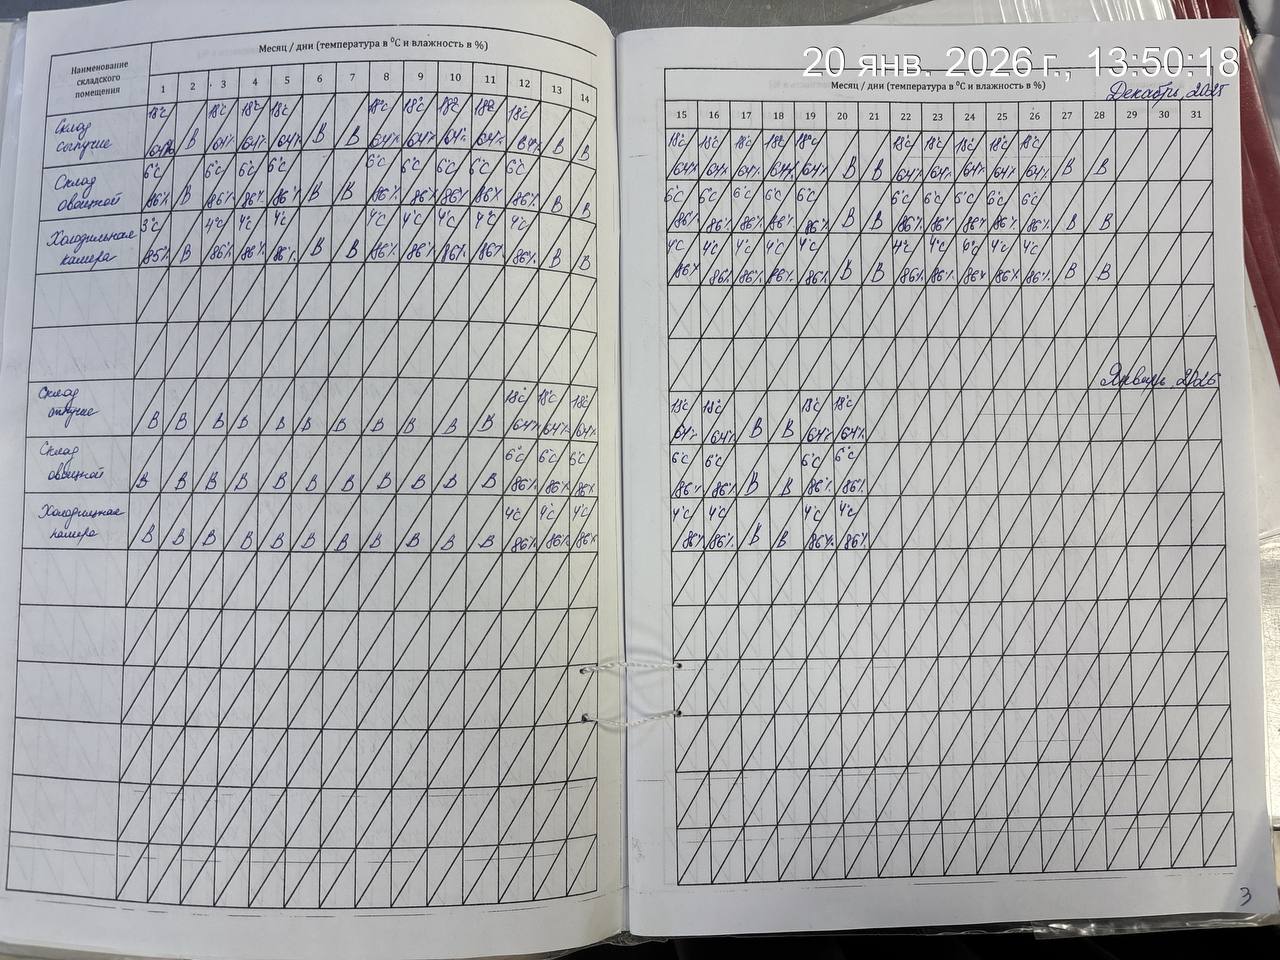 20 янв. 2026 г., 13:50:18
Наименование складского помещения
Месяц / дни (температура в ⁰С и влажность в %)
1 2 3 4 5 6 7 8 9 10 11 12 13 14
Склад
18°С 18°С 18°С 18°С 18°С 18°С 18°С 18°С 18°С
64% В 64% 64% 64% В В 64% 64% 64% 64% 64% В В
Склад овощной
6°С 6°С 6°С 6°С 6°С 6°С 6°С 6°С 6°С
86% В 86% 86% 86% В В 86% 86% 86% 86% 86% В В
Холодильная камера
3°С 4°С 4°С 4°С 4°С 4°С 4°С 4°С 4°С
85% В 86% 86% 86% В В 86% 86% 86% 86% 86% В В
Склад
18°С 18°С 18°С
В В В В В В В В В В В 64% 64% 64%
Склад овощной
6°С 6°С 6°С
В В В В В В В В В В В 86% 86% 86%
Холодильная камера
4°С 4°С 4°С
В В В В В В В В В В В 86% 86% 86%
Месяц / дни (температура в ⁰С и влажность в %)
Декабрь, 2025
15 16 17 18 19 20 21 22 23 24 25 26 27 28 29 30 31
18°С 18°С 18°С 18°С 18°С 18°С 18°С 18°С 18°С 18°С
64% 64% 64% 64% 64% В В 64% 64% 64% 64% 64% В В
6°С 6°С 6°С 6°С 6°С 6°С 6°С 6°С 6°С 6°С
86% 86% 86% 86% 86% В В 86% 86% 86% 86% 86% В В
4°С 4°С 4°С 4°С 4°С 4°С 4°С 6°С 4°С 4°С
86% 86% 86% 86% 86% В В 86% 86% 86% 86% 86% В В
Январь, 2026
18°С 18°С 18°С 18°С
64% 64% В В 64% 64%
6°С 6°С 6°С 6°С
86% 86% В В 86% 86%
4°С 4°С 4°С 4°С
86% 86% В В 86% 86%
3